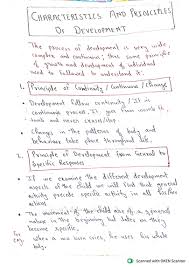 CHARACTERISTICS AND PRINCIPLES
OF DEVELOPMENT
The process of development is very wide
complex and continuous; thus some principles
of growth and development of individual
need to followed to understand it.
1. Principle of Continuity / Continuous / Change
Development follow continuity / It is
continuous process. If you from womb it,
and never cease/stop
Changes in the patterns of body and
behaviour take place throughout life.
2. Principle of Development from General to
Specific Responses
If we examine the different development
aspects of the child we will find that general
activity precede specific activity in all
The movement of the child are of a general
nature in the beginning but they
become specific,
for eg.
when a new born cries, he uses his whole
body.
Scanned with OKEN Scanner